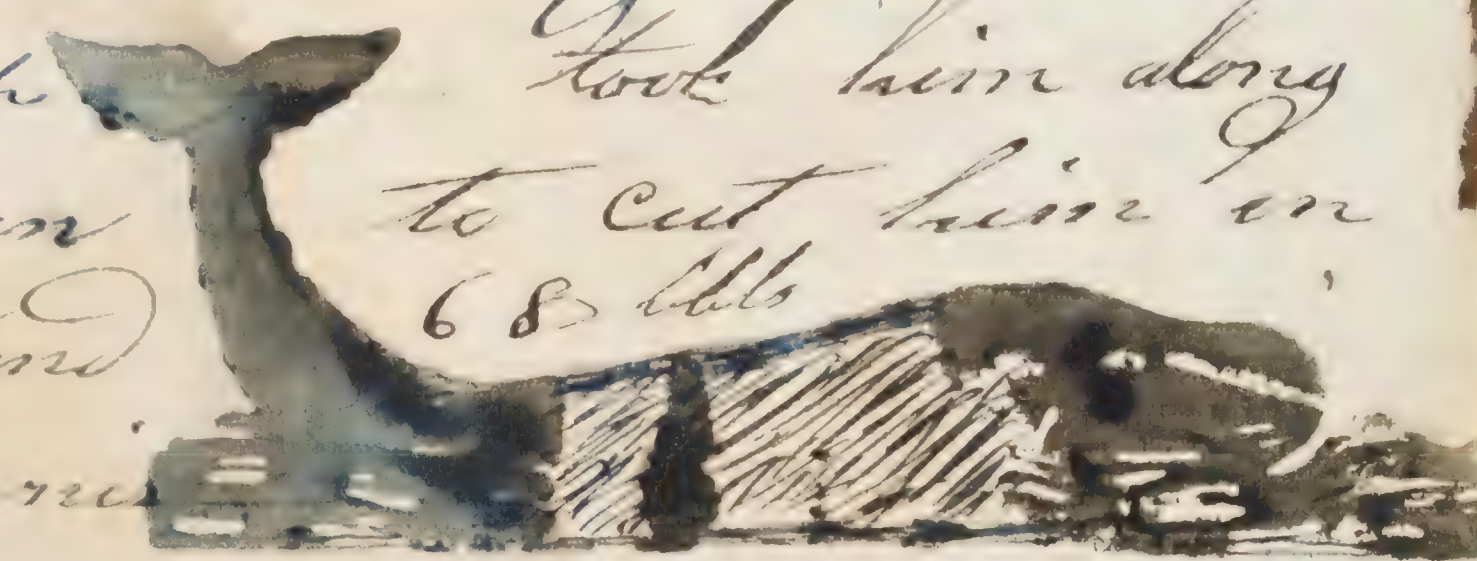 took him along
to cut him in
68 bbls